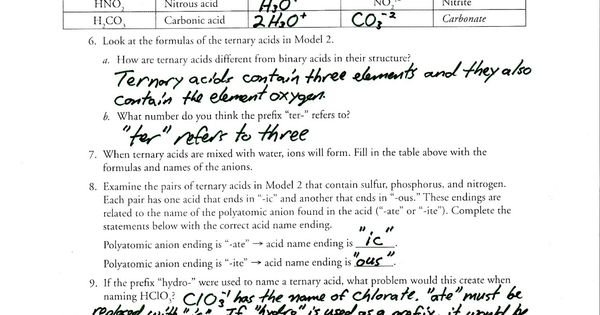 HNO₂ Nitrous acid H₃O⁺ NO₂⁻ Nitrite
H₂CO₃ Carbonic acid 2 H₃O⁺ CO₃⁻² Carbonate
6. Look at the formulas of the ternary acids in Model 2.
a. How are ternary acids different from binary acids in their structure?
Ternary acids contain three elements and they also
contain the element oxygen.
b. What number do you think the prefix "ter-" refers to?
"ter" refers to three
7. When ternary acids are mixed with water, ions will form. Fill in the table above with the
formulas and names of the anions.
8. Examine the pairs of ternary acids in Model 2 that contain sulfur, phosphorus, and nitrogen.
Each pair has one acid that ends in "-ic" and another that ends in "-ous." These endings are
related to the name of the polyatomic anion found in the acid ("-ate" or "-ite"). Complete the
statements below with the correct acid name ending.
Polyatomic anion ending is "-ate" → acid name ending is "ic".
Polyatomic anion ending is "-ite" → acid name ending is "ous".
9. If the prefix "hydro-" were used to name a ternary acid, what problem would this create when
naming HClO₃? ClO₃⁻¹ has the name of chlorate. "ate" must be
replaced with "ic". If "hydro" is used as a prefix, it would be